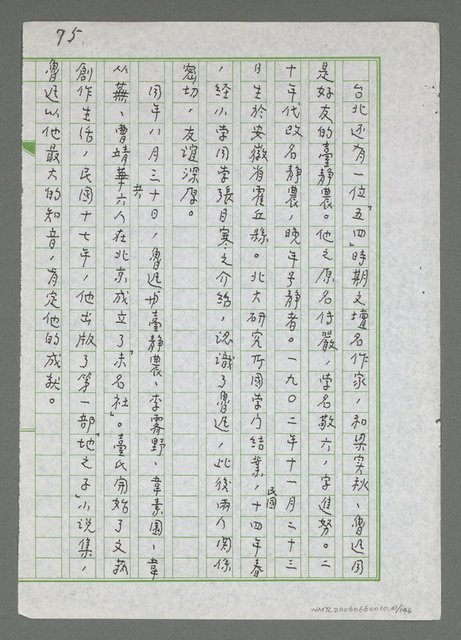 75.
台北还有一位「五四」時期文壇名作家，和梁实秋、魯迅同
是好友的臺靜農。他之原名传嚴，学名敬六，字進努。二
十年代改名靜農，晚年字靜者。一九〇二年十一月二十三
日生於安徽省霍丘縣。北大研究所国学门結業，民国十四年春
，经小学同学張目寒之介绍，认識了魯迅，此後兩人関係
密切，友谊深厚。
同年八月三十日，魯迅与臺靜農、李霽野、韋素園、韋
丛蕪、曹靖華共六人在北京成立了「未名社」。臺氏開始了文藝
創作生活，民国十七年，他出版了第一部「地之子」小说集，
魯迅以他最大的知音，肯定他的成就。
NMTL20060660010.41/146